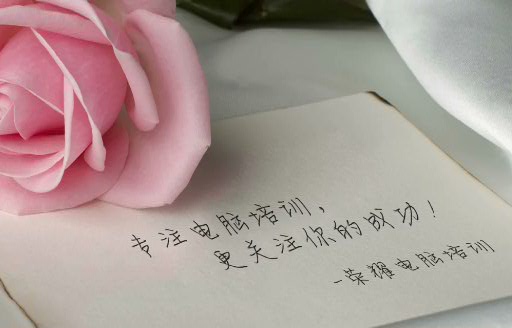 专注电脑培训，
更关注你的成功！
-荣耀电脑培训